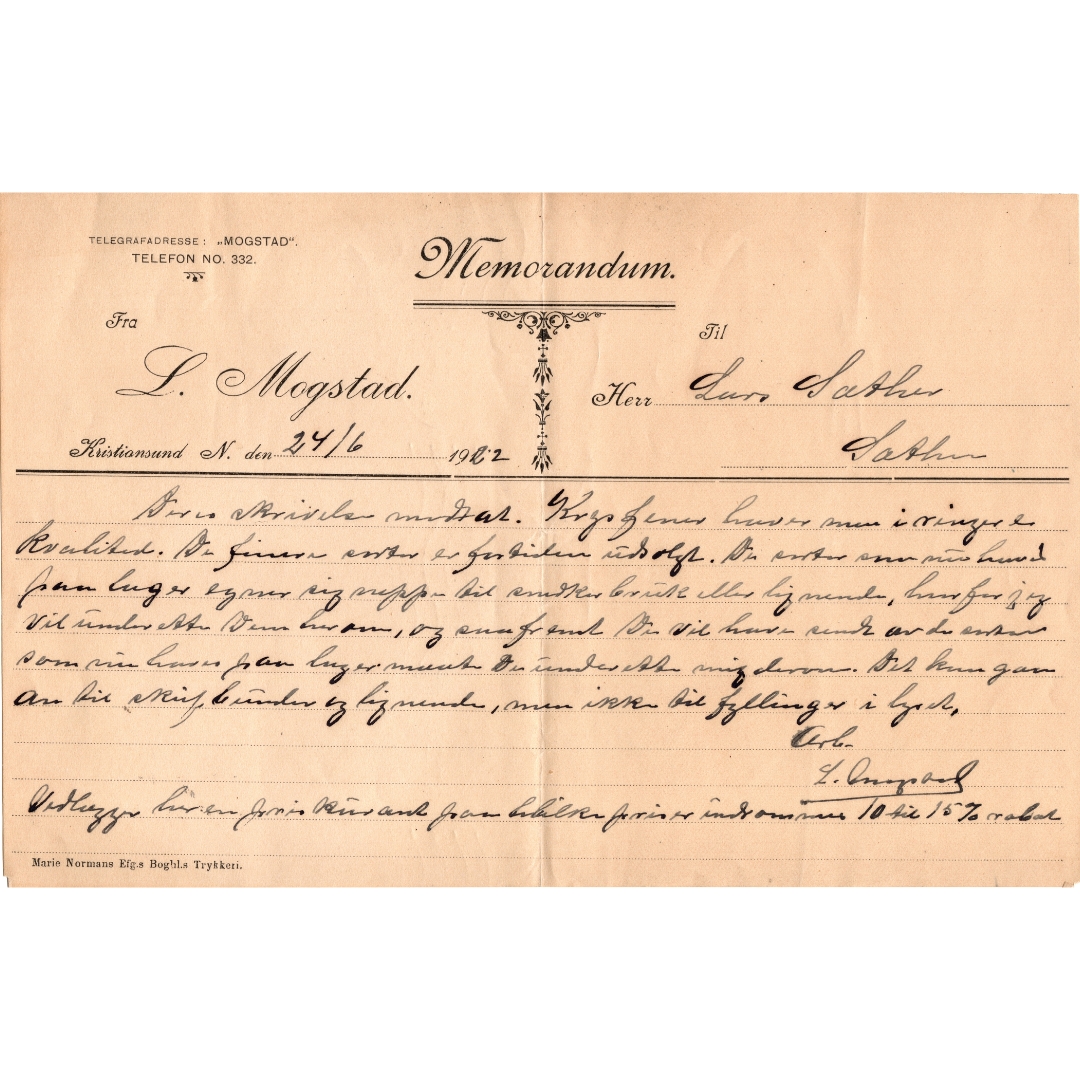 TELEGRAFADRESSE: „MOGSTAD“.
TELEFON NO. 332.
Memorandum.
Fra
L. Mogstad.
Kristiansund N. den 24/6 1922
Til
Herr Lars Sæther
Sæther
Deres skrivelse modtat. Krysfiner haves men i ringere
kvalited. De finere sorter er fortiden udsolgt. De sorter som nu haves
paa lager egner sig neppe til snedkerbruk eller lignende, hvorfor jeg
vil underette Dem herom, og saafremt De vil have sendt av de sorter
som nu haves paa lager maate De underette mig derom. Det kan gaa
an til skufbunder og lignende, men ikke til fyllinger i lyset,
Ærb.
L. Mogstad
Vedlægger her en priskurant paa hvilke priser indrømmes 10 til 15% rabat
Marie Normans Efg.s Boghl.s Trykkeri.